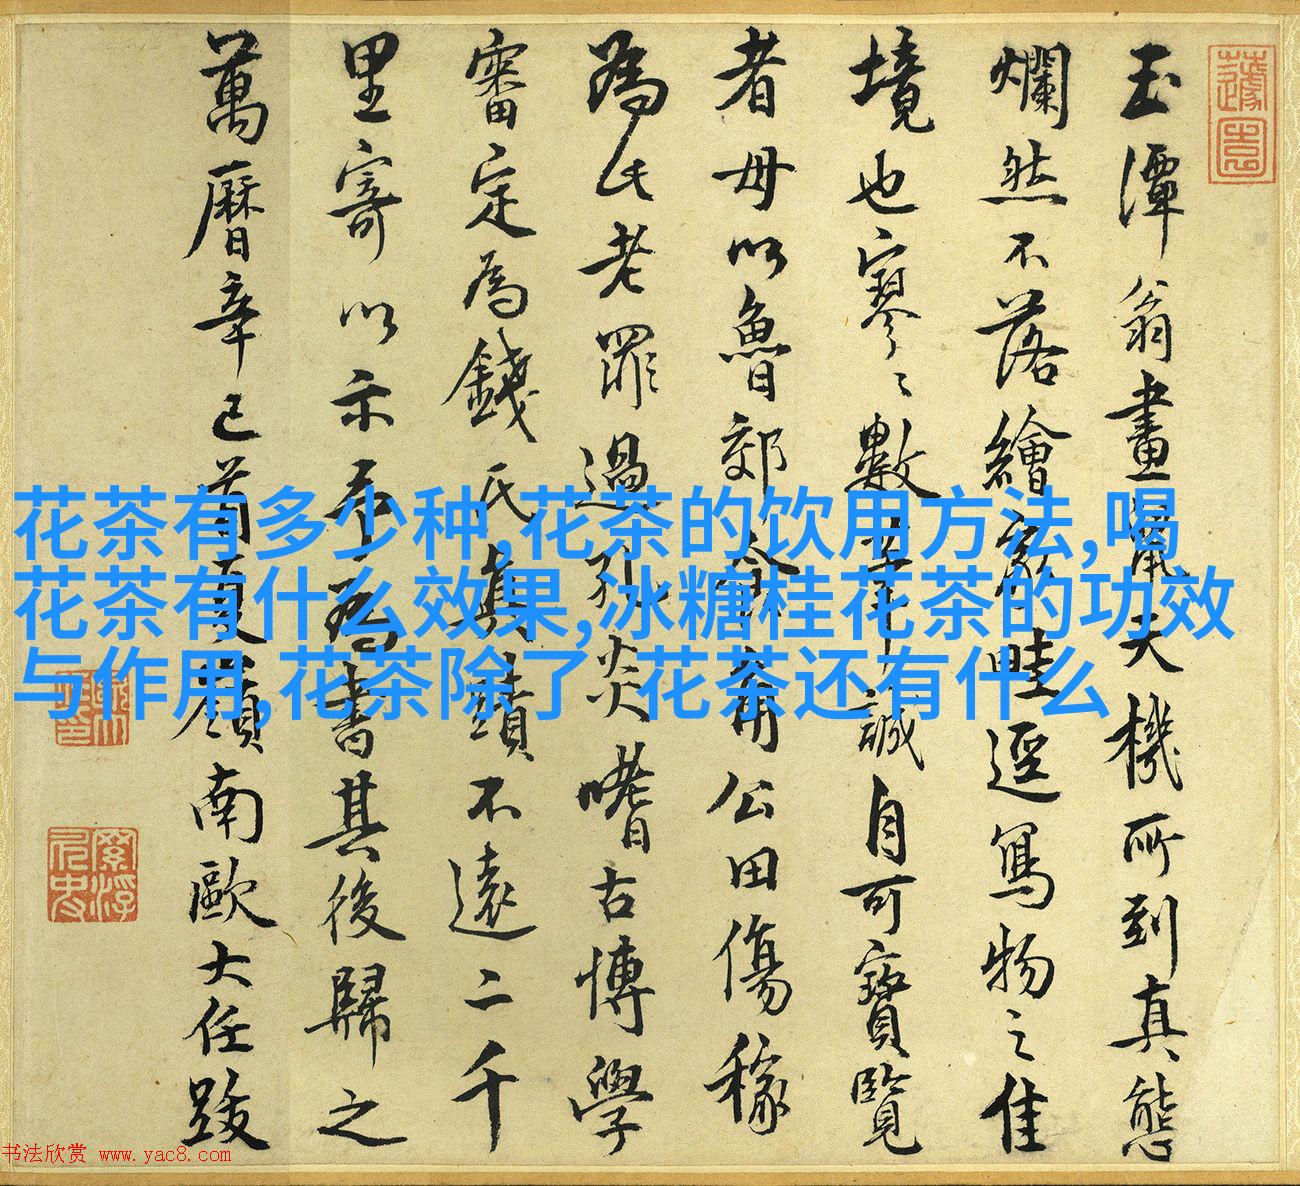 玉潭翁畫鼠天機所到真態
爛然不落繪家畦逕寫物之佳
境也寥々數筆誠自可寶覽
者毋以魯郊食角公田傷稼
為氏老罪過孔炎嗜古博學
審定為錢氏真蹟不遠二千
里寄以示命為書其後歸之
萬曆辛巳首夏嶺南歐大任跋
花茶有多少种,花茶的饮用方法,喝
花茶有什么效果,冰糖桂花茶的功效
与作用,花茶除了 花茶还有什么
书法欣赏 www.yac8.com